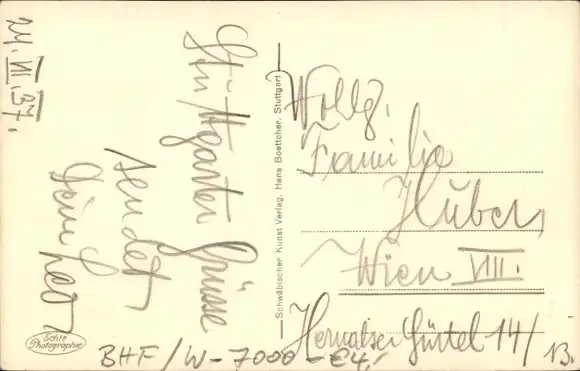 24.VII.37.
Stuttgarter Grüsse
sendet
Dein Leo
Schwäbischer Kunst Verlag, Hans Boettcher, Stuttgart
Familie
Huber
Wien VIII.
Hernalser Gürtel 14/13.
Echte
Photographie
BHF/W-7000-€4,-